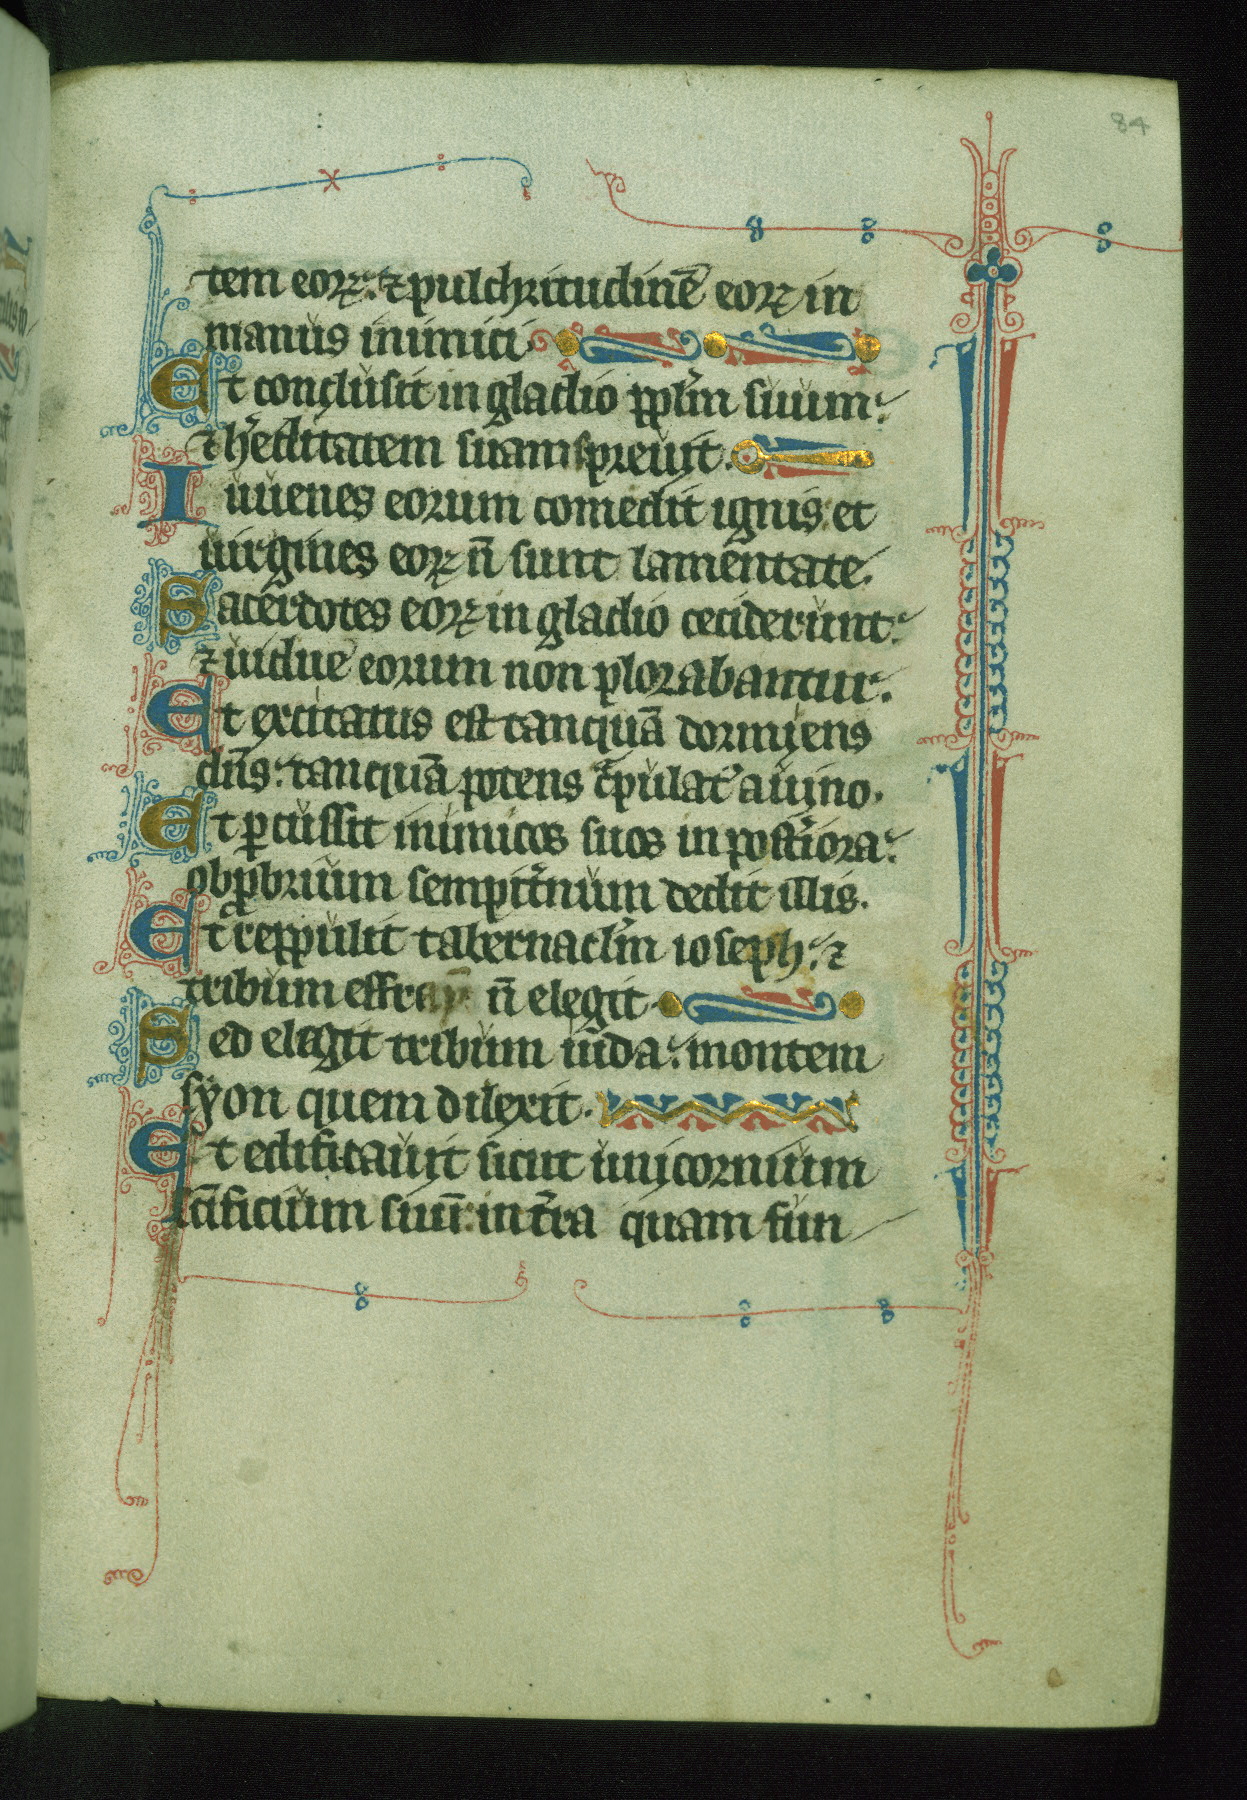 84
tem eoꝝ: ⁊ pulchritudinē eoꝝ in
manus inimici.
Et conclusit in gladio pplm̄ suum:
⁊ h̓editatem suam spreuit.
Iuuenes eorum comedit ignis: et
uirgines eoꝝ n̄ sunt lamentate.
Sacerdotes eoꝝ in gladio ceciderunt:
⁊ uidue eorum non plorabantur.
Et excitatus est tanquā dormiens
dn̄s: tanquā potens c̓pulat᾽ a uino.
Et ꝑcussit inimicos suos in post̓iora:
obꝓbrium sempit̓num dedit illis.
Et reppulit tabernacl̓m ioseph: ⁊
tribum effray̅ n̄ elegit.
Sed elegit tribum iuda: montem
syon quem dilexit.
Et edificauit sicut unicornium
sc̄ificium suū: in t̓ra quam fun